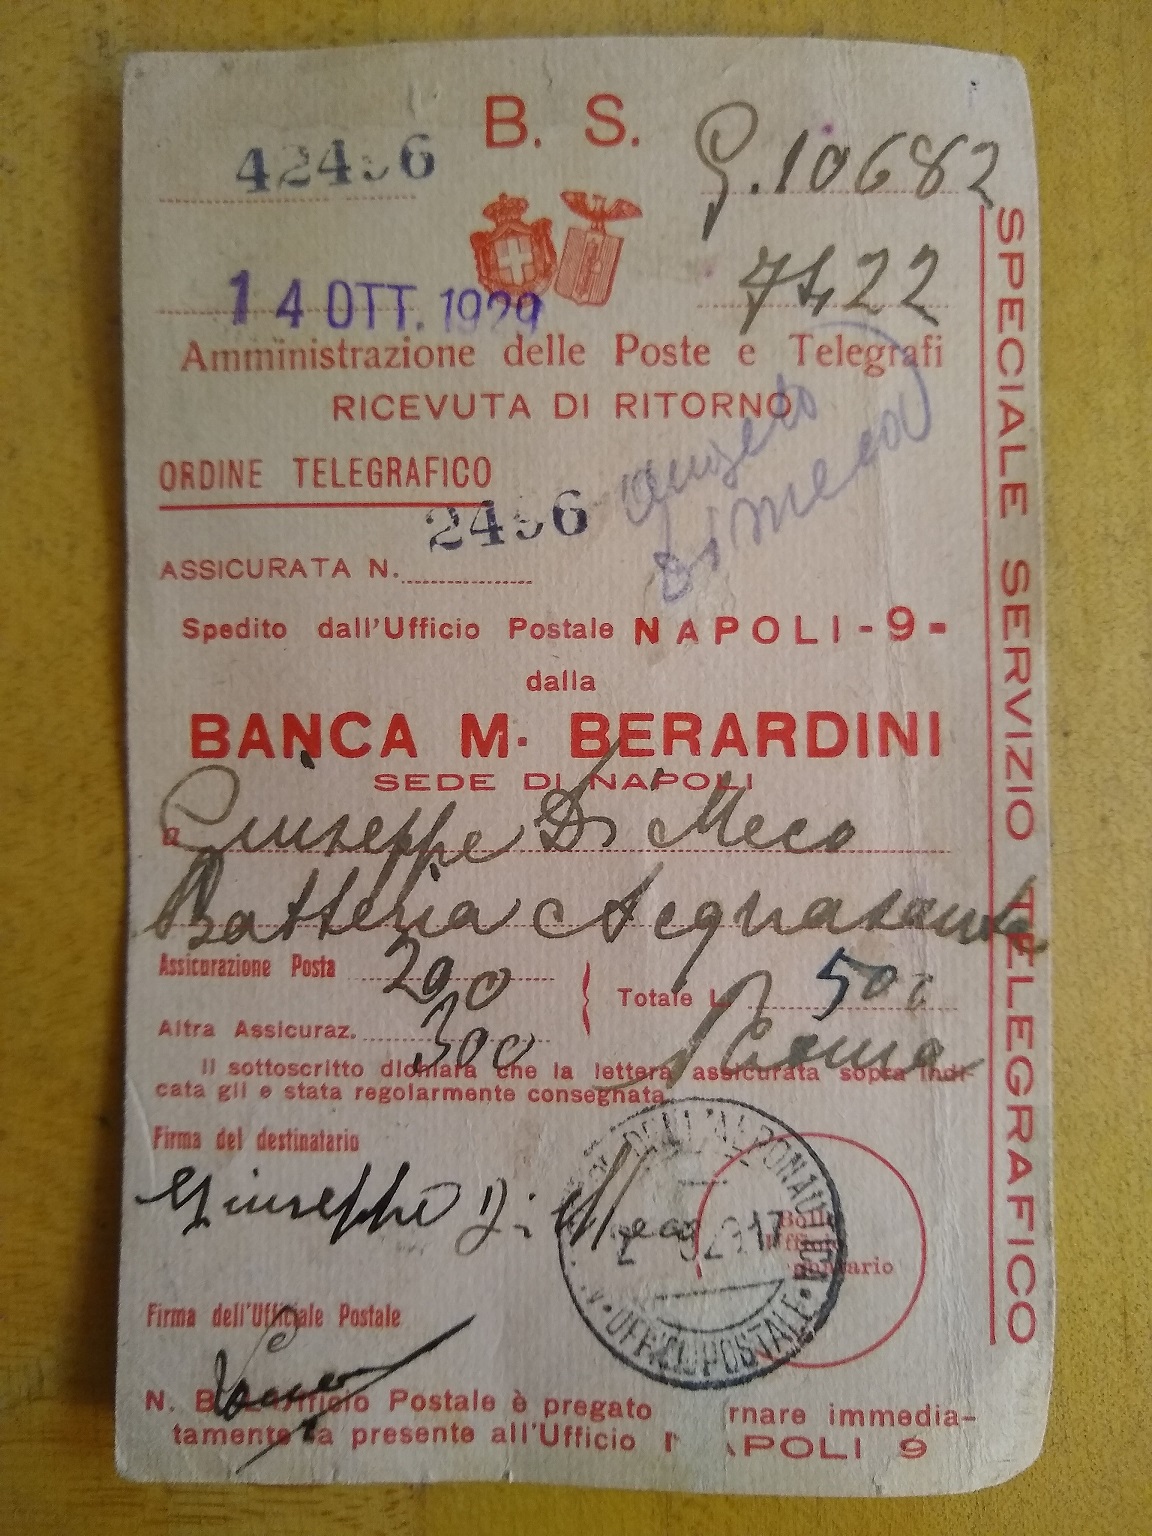 B. S.
G. 10682
14 OTT. 1929
7422
Amministrazione delle Poste e Telegrafi
RICEVUTA DI RITORNO
ORDINE TELEGRAFICO
Di Meco
ASSICURATA N.
Spedito dall'Ufficio Postale NAPOLI-9-
dalla
BANCA M. BERARDINI
SEDE DI NAPOLI
a Giuseppe Di Meco
Batteria Acquasanta
Assicurazione Posta 200
Totale L. 500
Altra Assicuraz. 300
Roma
Il sottoscritto dichiara che la lettera assicurata sopra indi-
cata gli e stata regolarmente consegnata.
Firma del destinatario
Giuseppe Di Meco
DELL'AERONAUTICA
UFFICIO POSTALE
Firma dell'Ufficiale Postale
N. B. L'Ufficio Postale è pregato rnare immedia-
tamente la presente all'Ufficio NAPOLI 9
SPECIALE SERVIZIO TELEGRAFICO